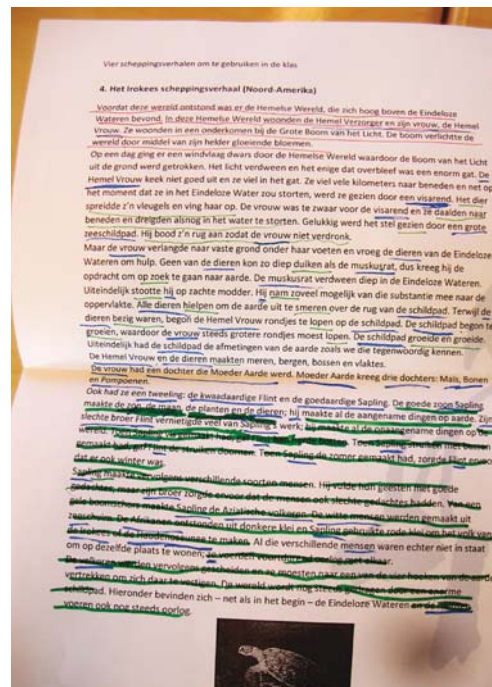 Vier scheppingsverhalen om te gebruiken in de klas
4. Het Irokees scheppingsverhaal (Noord-Amerika)
Voordat deze wereld ontstond was er de Hemelse Wereld, die zich hoog boven de Eindeloze
Wateren bevond. In deze Hemelse Wereld woonden de Hemel Verzorger en zijn vrouw, de Hemel
Vrouw. Ze woonden in een onderkomen bij de Grote Boom van het Licht. De boom verlichtte de
wereld door middel van zijn helder gloeiende bloemen.
Op een dag ging er een windvlaag dwars door de Hemelse Wereld waardoor de Boom van het Licht
uit de grond werd getrokken. Het licht verdween en het enige dat overbleef was een enorm gat. De
Hemel Vrouw keek niet goed uit en ze viel in het gat. Ze viel vele kilometers naar beneden en net op
het moment dat ze in het Eindeloze Water zou storten, werd ze gezien door een visarend. Het dier
spreidde z'n vleugels en ving haar op. De vrouw was te zwaar voor de visarend en ze daalden naar
beneden en dreigden alsnog in het water te storten. Gelukkig werd het stel gezien door een grote
zeeschildpad. Hij bood z'n rug aan zodat de vrouw niet verdronk.
Maar de vrouw verlangde naar vaste grond onder haar voeten en vroeg de dieren van de Eindeloze
Wateren om hulp. Geen van de dieren kon zo diep duiken als de muskusrat, dus kreeg hij de
opdracht om op zoek te gaan naar aarde. De muskusrat verdween diep in de Eindeloze Wateren.
Uiteindelijk stootte hij op zachte modder. Hij nam zoveel mogelijk van die substantie mee naar de
oppervlakte. Alle dieren hielpen om de aarde uit te smeren over de rug van de schildpad. Terwijl de
dieren bezig waren, begon de Hemel Vrouw rondjes te lopen op de schildpad. De schildpad begon te
groeien, waardoor de vrouw steeds grotere rondjes moest lopen. De schildpad groeide en groeide.
Uiteindelijk had de schildpad de afmetingen van de aarde zoals we die tegenwoordig kennen.
De Hemel Vrouw en de dieren maakten meren, bergen, bossen en vlaktes.
De vrouw had een dochter die Moeder Aarde werd. Moeder Aarde kreeg drie dochters: Maïs, Bonen
en Pompoenen.
Ook had ze een tweeling: de kwaadaardige Flint en de goedaardige Sapling. De goede zoon Sapling
maakte de zon, de maan, de planten en de dieren; hij maakte al de aangename dingen op aarde. Zijn
slechte broer Flint vernietigde veel van Sapling's werk; hij maakte al de onaangename dingen op de
wereld. Toen Sapling
gemaakt had, gaf Flint de struiken doornen. Toen Sapling de zomer gemaakt had, zorgde Flint ervoor
dat er ook winter was.
Sapling maakte vervolgens verschillende soorten mensen. Hij vulde hun geesten met goede
gedachtes, maar zijn broer zorgde ervoor dat de mensen ook slechte gedachtes hadden. Van een
gele boomschors maakte Sapling de Aziatische volkeren. De witte mensen werden gemaakt uit
zeeschuim. De ontstonden uit donkere klei en Sapling gebruikte rode klei om het volk van
de Irokees of te maken. Al die verschillende mensen waren echter niet in staat
om op dezelfde plaats te wonen;
De werden vervolgens gescheiden en ze moesten naar een van de vier hoeken van de aarde
vertrekken om zich daar te vestigen. De wereld wordt nog steeds door een enorme
schildpad. Hieronder bevinden zich – net als in het begin – de Eindeloze Wateren en de
voeren ook nog steeds oorlog.